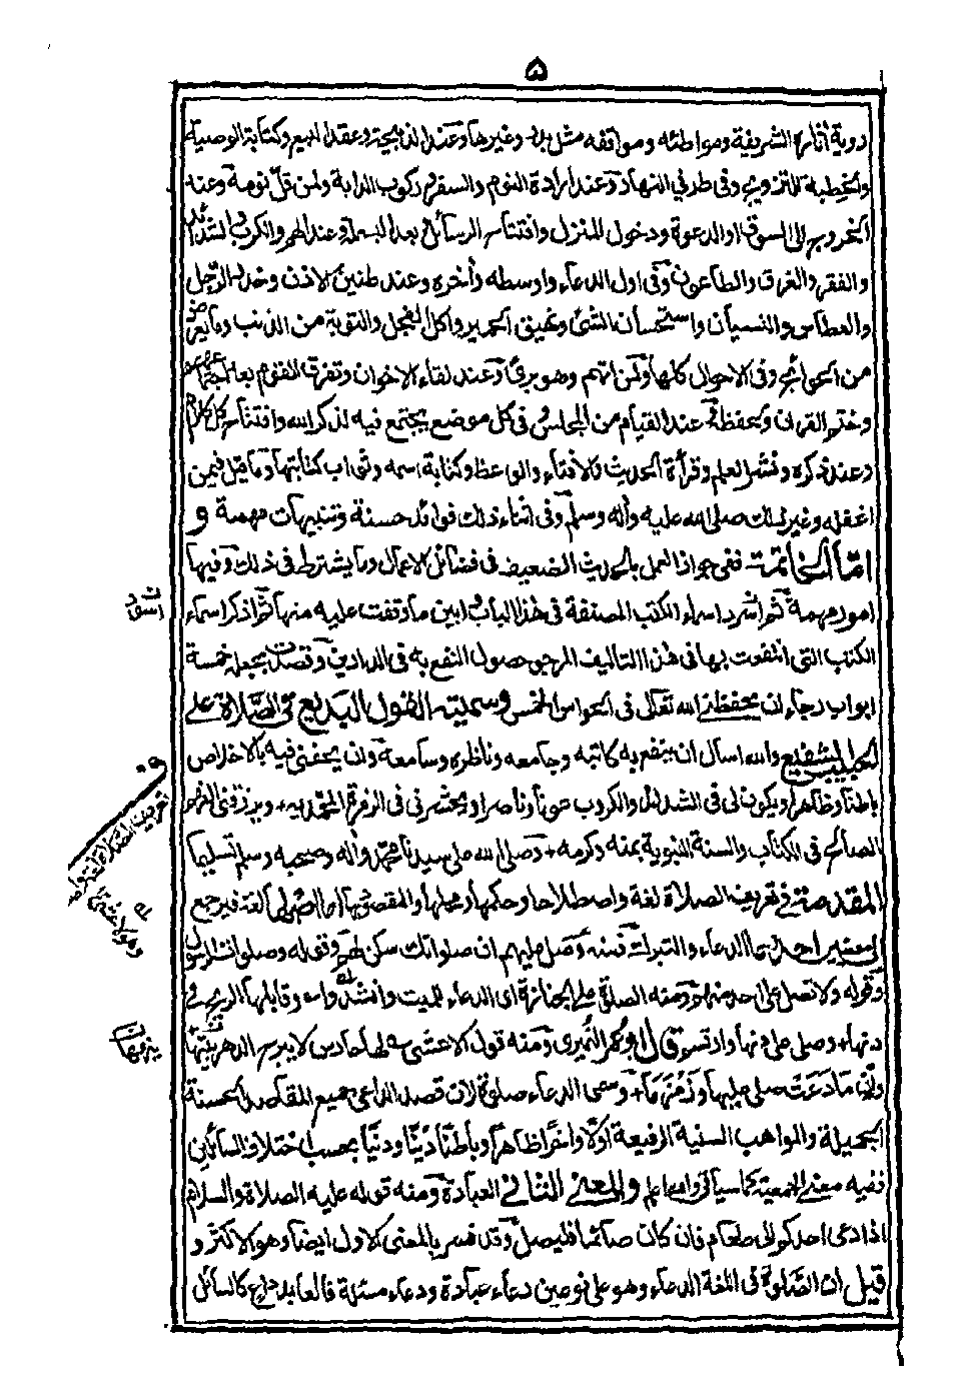 ۵
روية آثاره الشريفة ومواطئه ومواقفه مثل بدر وغيرها وعند الذبيحة وعقد البيع وكتابة الوصية
والخطبة للتزويج وفى طرفي النهار وعند ارادة النوم والسفر وركوب الدابة ولمن قل نومه وعند
الخروج الى السوق او الدعوة ودخول المنزل وافتتاح الرسائل بعد البسملة وعند الهم والكرب والشدائد
والفقر والغرق والطاعون وفى اول الدعاء واوسطه وآخره وعند طنين الاذن وخدر الرجل
والعطاس والنسيان واستحسان الشئ ونهيق الحمير واكل الفجل والتوبة من الذنب وما يعرض
من الحوائج وفى الاحوال كلها ولمن اتهم وهو برئ وعند لقاء الاخوان وتفرق القوم بعد اجتماعهم
وختم القرآن ولحفظه وعند القيام من المجلس وفى كل موضع يجتمع فيه لذكر الله وافتتاح كل كلام
وعند ذكره ونشر العلم وقرأة الحديث والافتاء والوعظ وكتابة اسمه وثواب كتابتها وما قيل فيمن
اغفله وغير ذلك صلى الله عليه وآله وسلم وفى اثناء ذلك فوائد حسنة وتنبيهات مهمة و
اما الخاتمة ففى جواز العمل بالحديث الضعيف فى فضائل الاعمال وما يشترط فى ذلك وفيها
امور مهمة ثم اسرد اسماء الكتب المصنفة فى هذا الباب وابين ما وقفت عليه منها ثم اذكر اسماء
الكتب التى انتفعت بها فى هذا التاليف المرجو حصول النفع به فى الدارين وقصدت بجعله خمسة
ابواب رجاء ان يحفظنى الله تعالى فى الحواس الخمس وسميته القول البديع فى الصلاة على
الحبيب الشفيع والله اسأل ان ينفع به كاتبه وجامعه وناظره وسامعه وان يحفنى فيه بالاخلاص
باطنا وظاهرا ويكون لى فى الشدائد والكروب عونا وناصرا ويحشرنى فى الزمرة المحمدية ويرزقنى الفهم
الصالح فى الكتاب والسنة النبوية بمنه وكرمه وصلى الله على سيدنا محمد وآله وصحبه وسلم تسليما
المقدمة فى تعريف الصلاة لغة واصطلاحا وحكمها ومحلها والمقصود بها اما اصلها لغة فيرجع
الى معنيين احدهما الدعاء والتبرك فمنه وصل عليهم ان صلواتك سكن لهم وقوله وصلوات الرسول
وقوله ولا تصل على احد منهم ومنه الصلاة على الجنازة اى الدعاء للميت وانشدوا وقابلها الريح فى
دنها وصلى على دنها وارتسم قال ابو عمر النميرى ومنه قول الاعشى لها حارس لا يبرح الدهر بيتها
وان ما ذبحت صلى عليها وزمزما وسمى الدعاء صلوة لان قصد الداعى جميع المقاصد الحسنة
الجميلة والمواهب السنية الرفيعة اولا وآخرا ظاهرا وباطنا دينا ودنيا بحسب اختلاف السائلين
ففيه معنى الجمعية كما سيأتى والمعنى الثانى العبادة ومنه قوله عليه الصلاة والسلام
اذا دعى احدكم الى طعام فان كان صائما فليصل وقد فسر بالمعنى الاول ايضا وهو الاكثر و
قيل ان الصلوة فى اللغة الدعاء وهو على نوعين دعاء عبادة ودعاء مسئلة فالعابد داع كالسائل